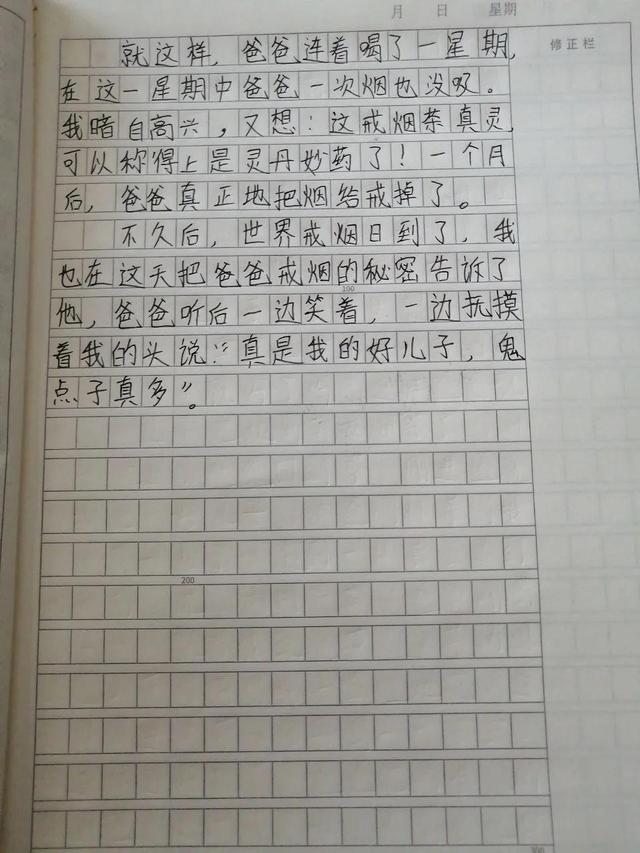 月 日 星期
修正栏
就这样，爸爸连着喝了一星期，
在这一星期中爸爸一次烟也没吸。
我暗自高兴，又想：这戒烟茶真灵，
可以称得上是灵丹妙药了！一个月
后，爸爸真正地把烟给戒掉了。
不久后，世界戒烟日到了，我
也在这天把爸爸戒烟的秘密告诉了
100
他，爸爸听后一边笑着，一边抚摸
着我的头说：“真是我的好儿子，鬼
点子真多”。
200
300